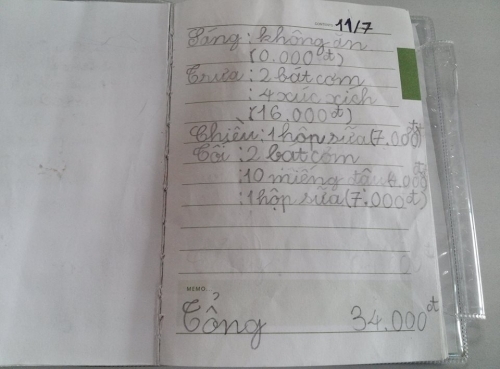 11/7
Sáng: không ăn
(0.000đ)
Trưa: 2 bát cơm
: 4 xúc xích
(16.000đ)
Chiều: 1 hộp sữa (7.000đ)
Tối: 2 bat cơm
: 10 miếng đậu (4.000đ)
: 1 hộp sữa (7.000đ)
MEMO
Tổng 34.000đ